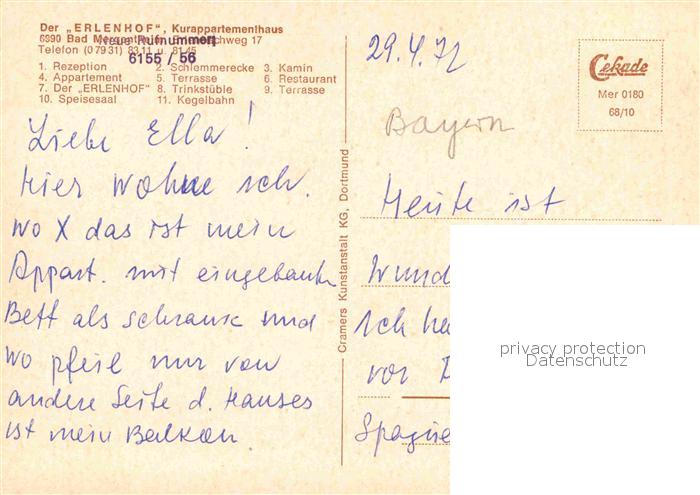 Der „ERLENHOF“, Kurappartementhaus
6990 Bad Mergentheim, Erlenbachweg 17
Telefon (07931) 8311 u. 8145
Neue Rufnummer
6155 / 56
1. Rezeption 2. Schlemmerecke 3. Kamin
4. Appartement 5. Terrasse 6. Restaurant
7. Der „ERLENHOF“ 8. Trinkstüble 9. Terrasse
10. Speisesaal 11. Kegelbahn
Liebe Ella!
Hier wohne ich.
wo X das ist mein
Appart. mit eingebauten
Bett als schrank und
wo pfeil nur von
andere Seite d. Hauses
ist mein Balkon.
Cramers Kunstanstalt KG, Dortmund
29.4.72
Cekade
Mer 0180
68/10
Bayern
Heute ist
Wund
Ich
vor
Spazie
privacy protection
Datenschutz